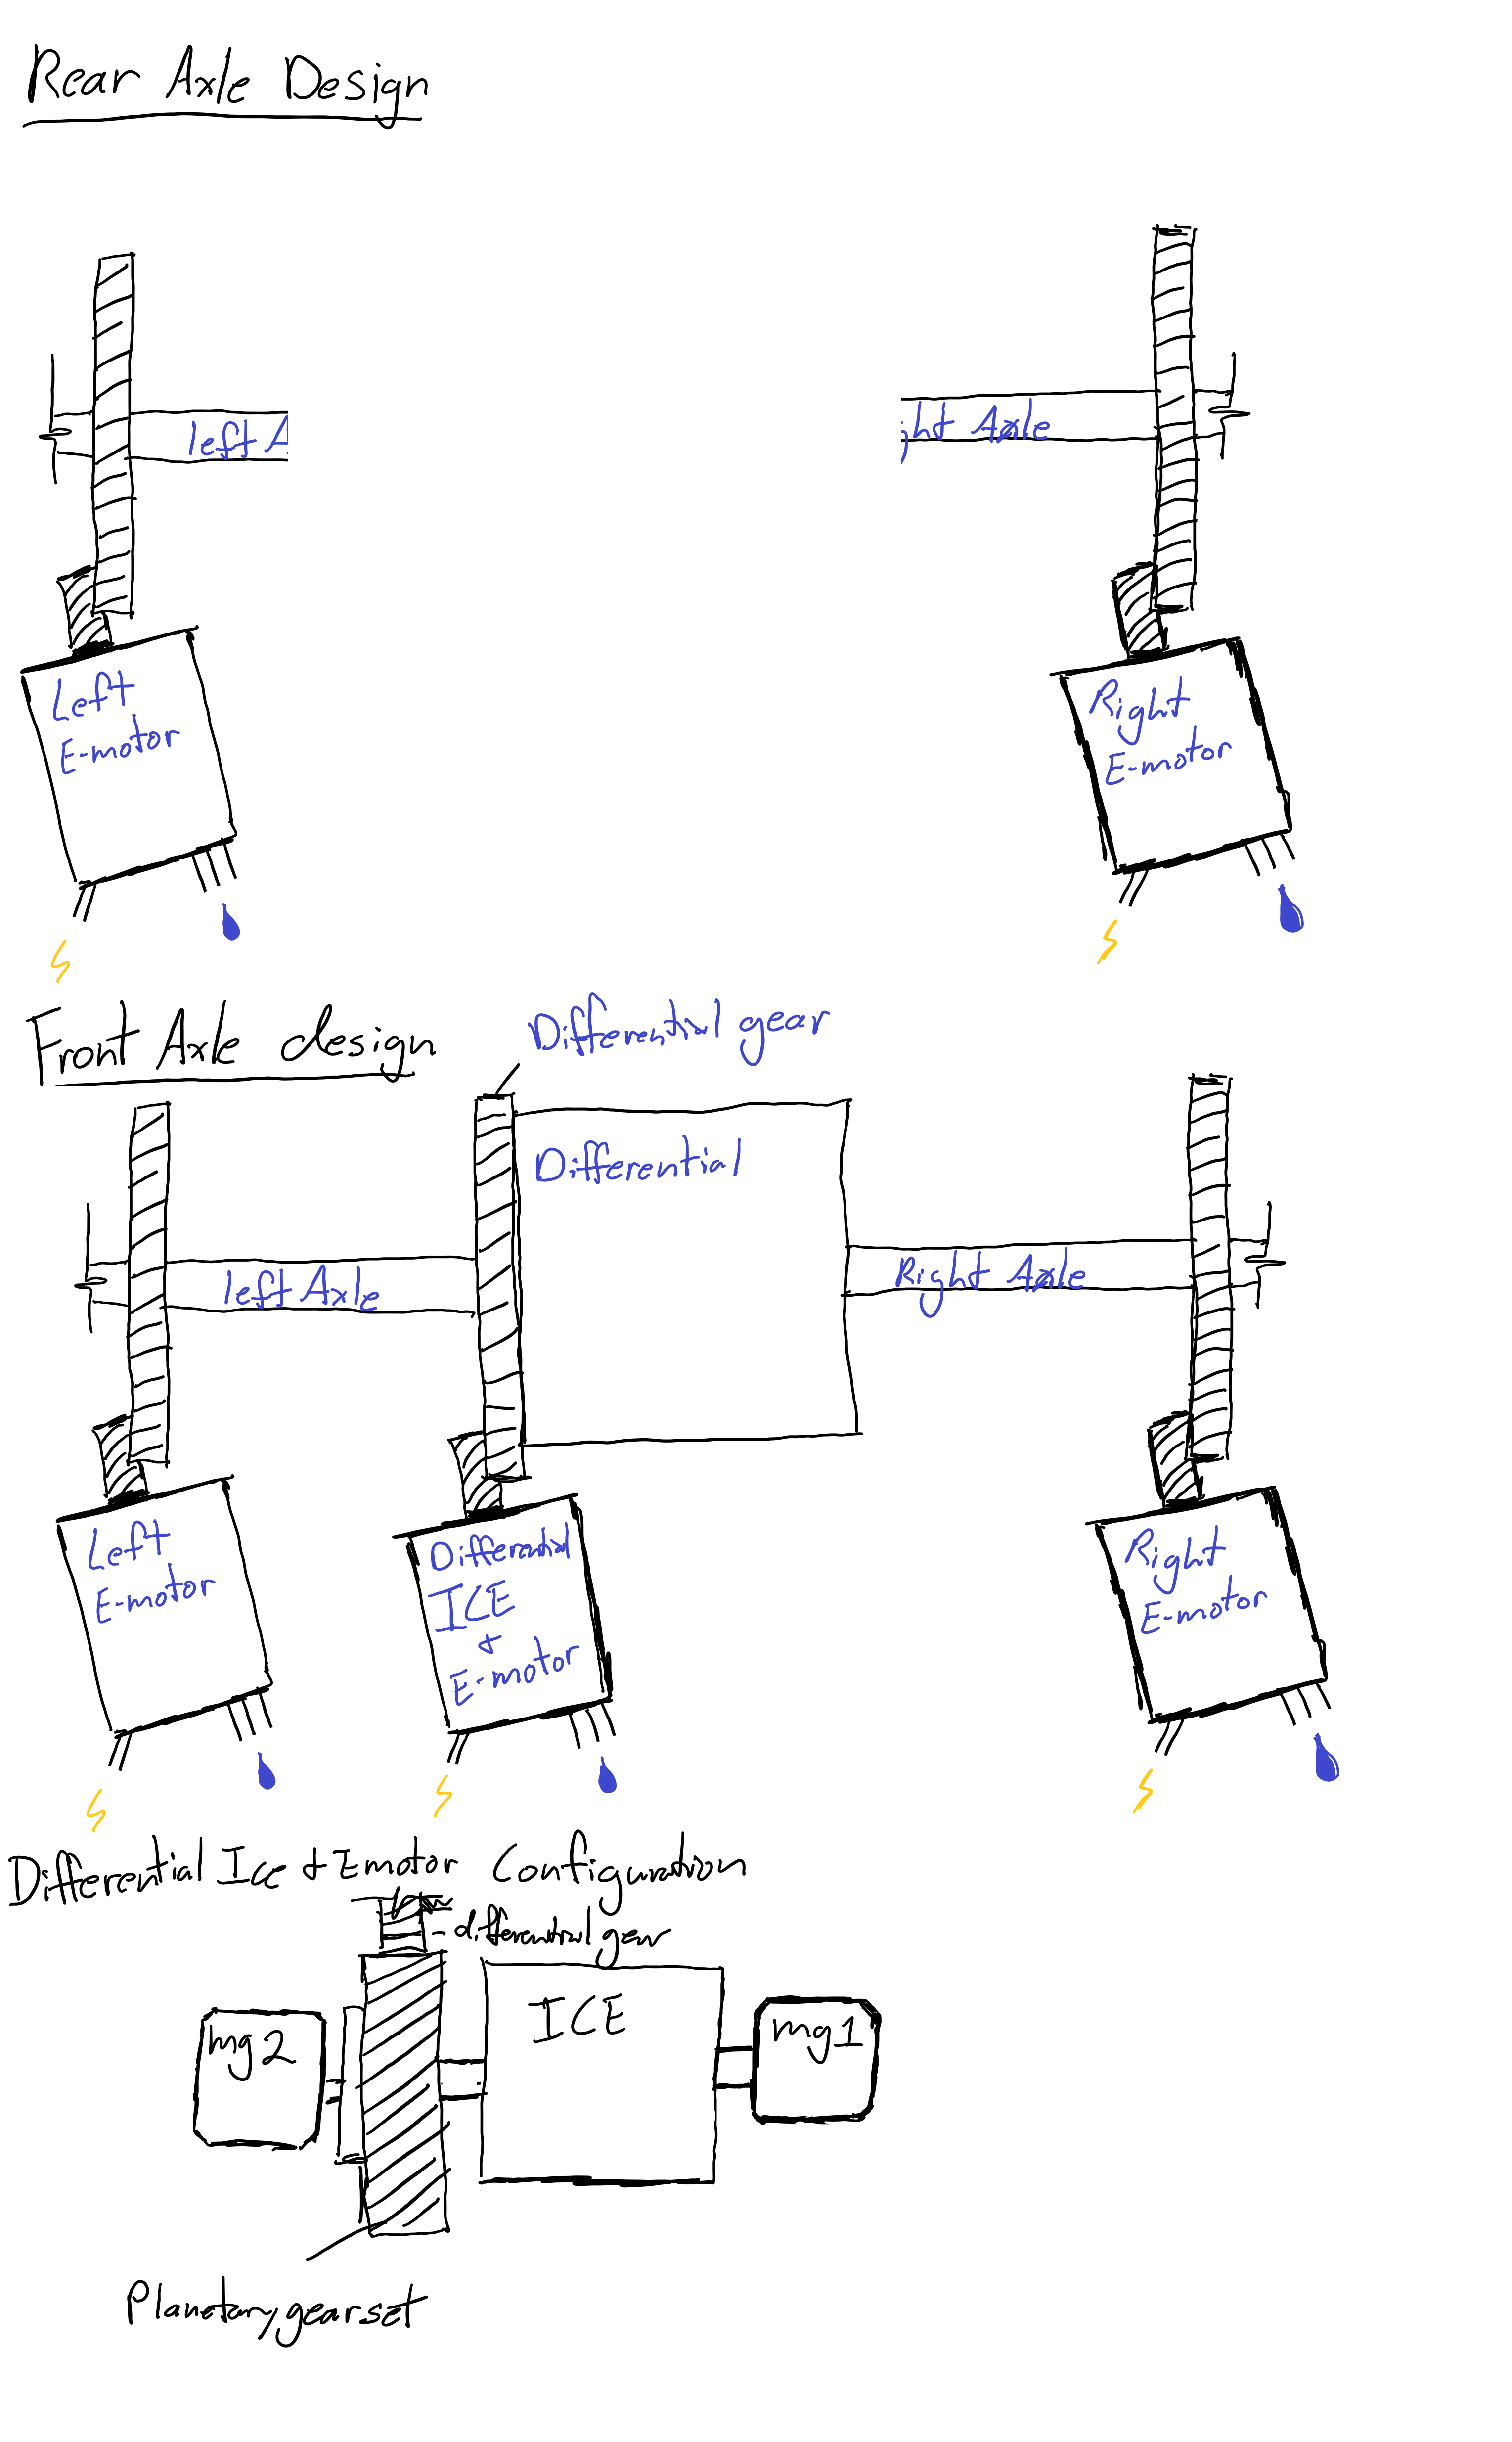 Rear Axle Design
left A
ht Axle
Left
E-motor
Right
E-motor
Front Axle design
Differential gear
Differential
left Axle
Right Axle
Left
E-motor
Differential
ICE
+
E-motor
Right
E-motor
Differential Ice + Emotor Configuration
- differential gear
mg2
ICE
mg1
Planetary gearset